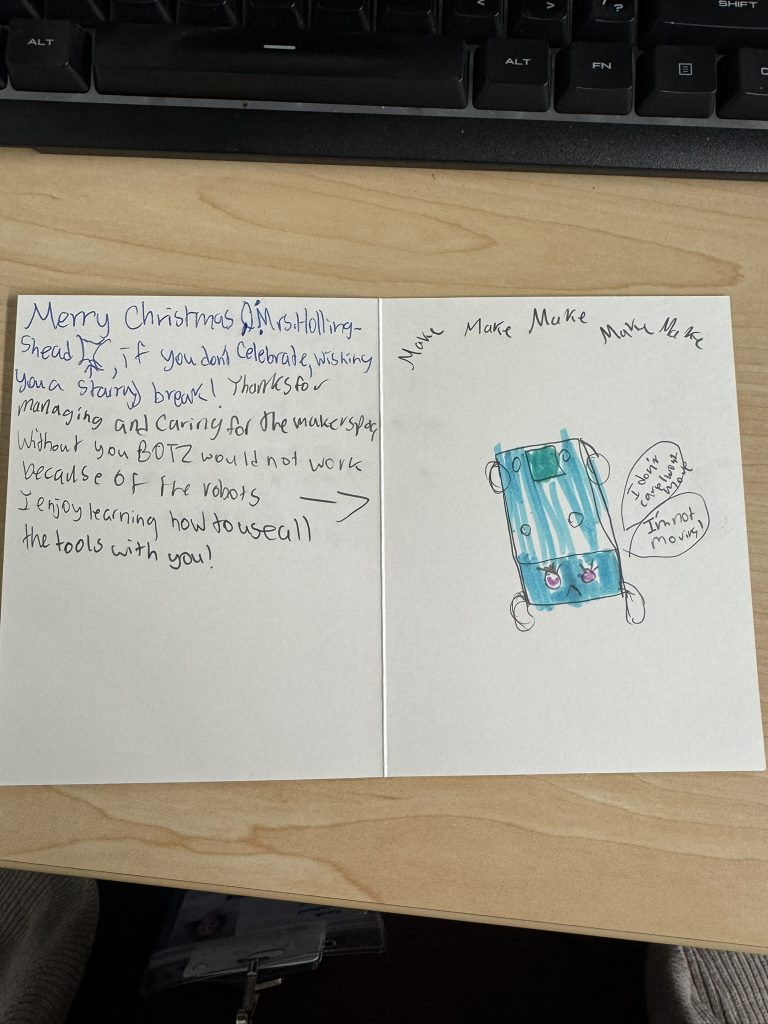 SHIFT
ALT
ALT
FN
Merry Christmas Mrs.Holling-
Shead, if you don't celebrate, wishing
you a starry break! Thanks for
managing and caring for the makerspac
Without you BOTZ would not work
because of the robots
I enjoy learning how to use all
the tools with you!
Make Make Make Make Make
I don't
care
I'm not
moving!